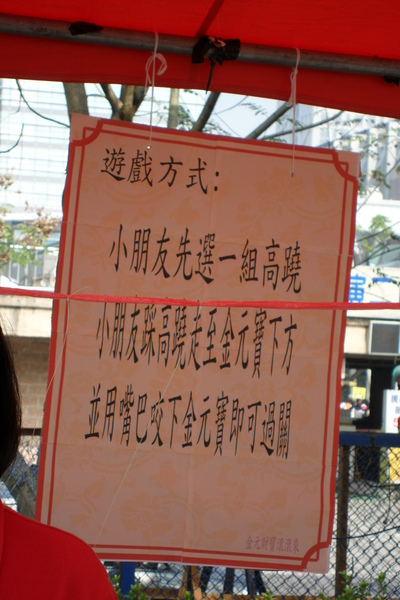 遊戲方式:
小朋友先選一組高蹺
小朋友踩高蹺走至金元寶下方
並用嘴巴咬下金元寶即可過關
金元財寶滾滾來